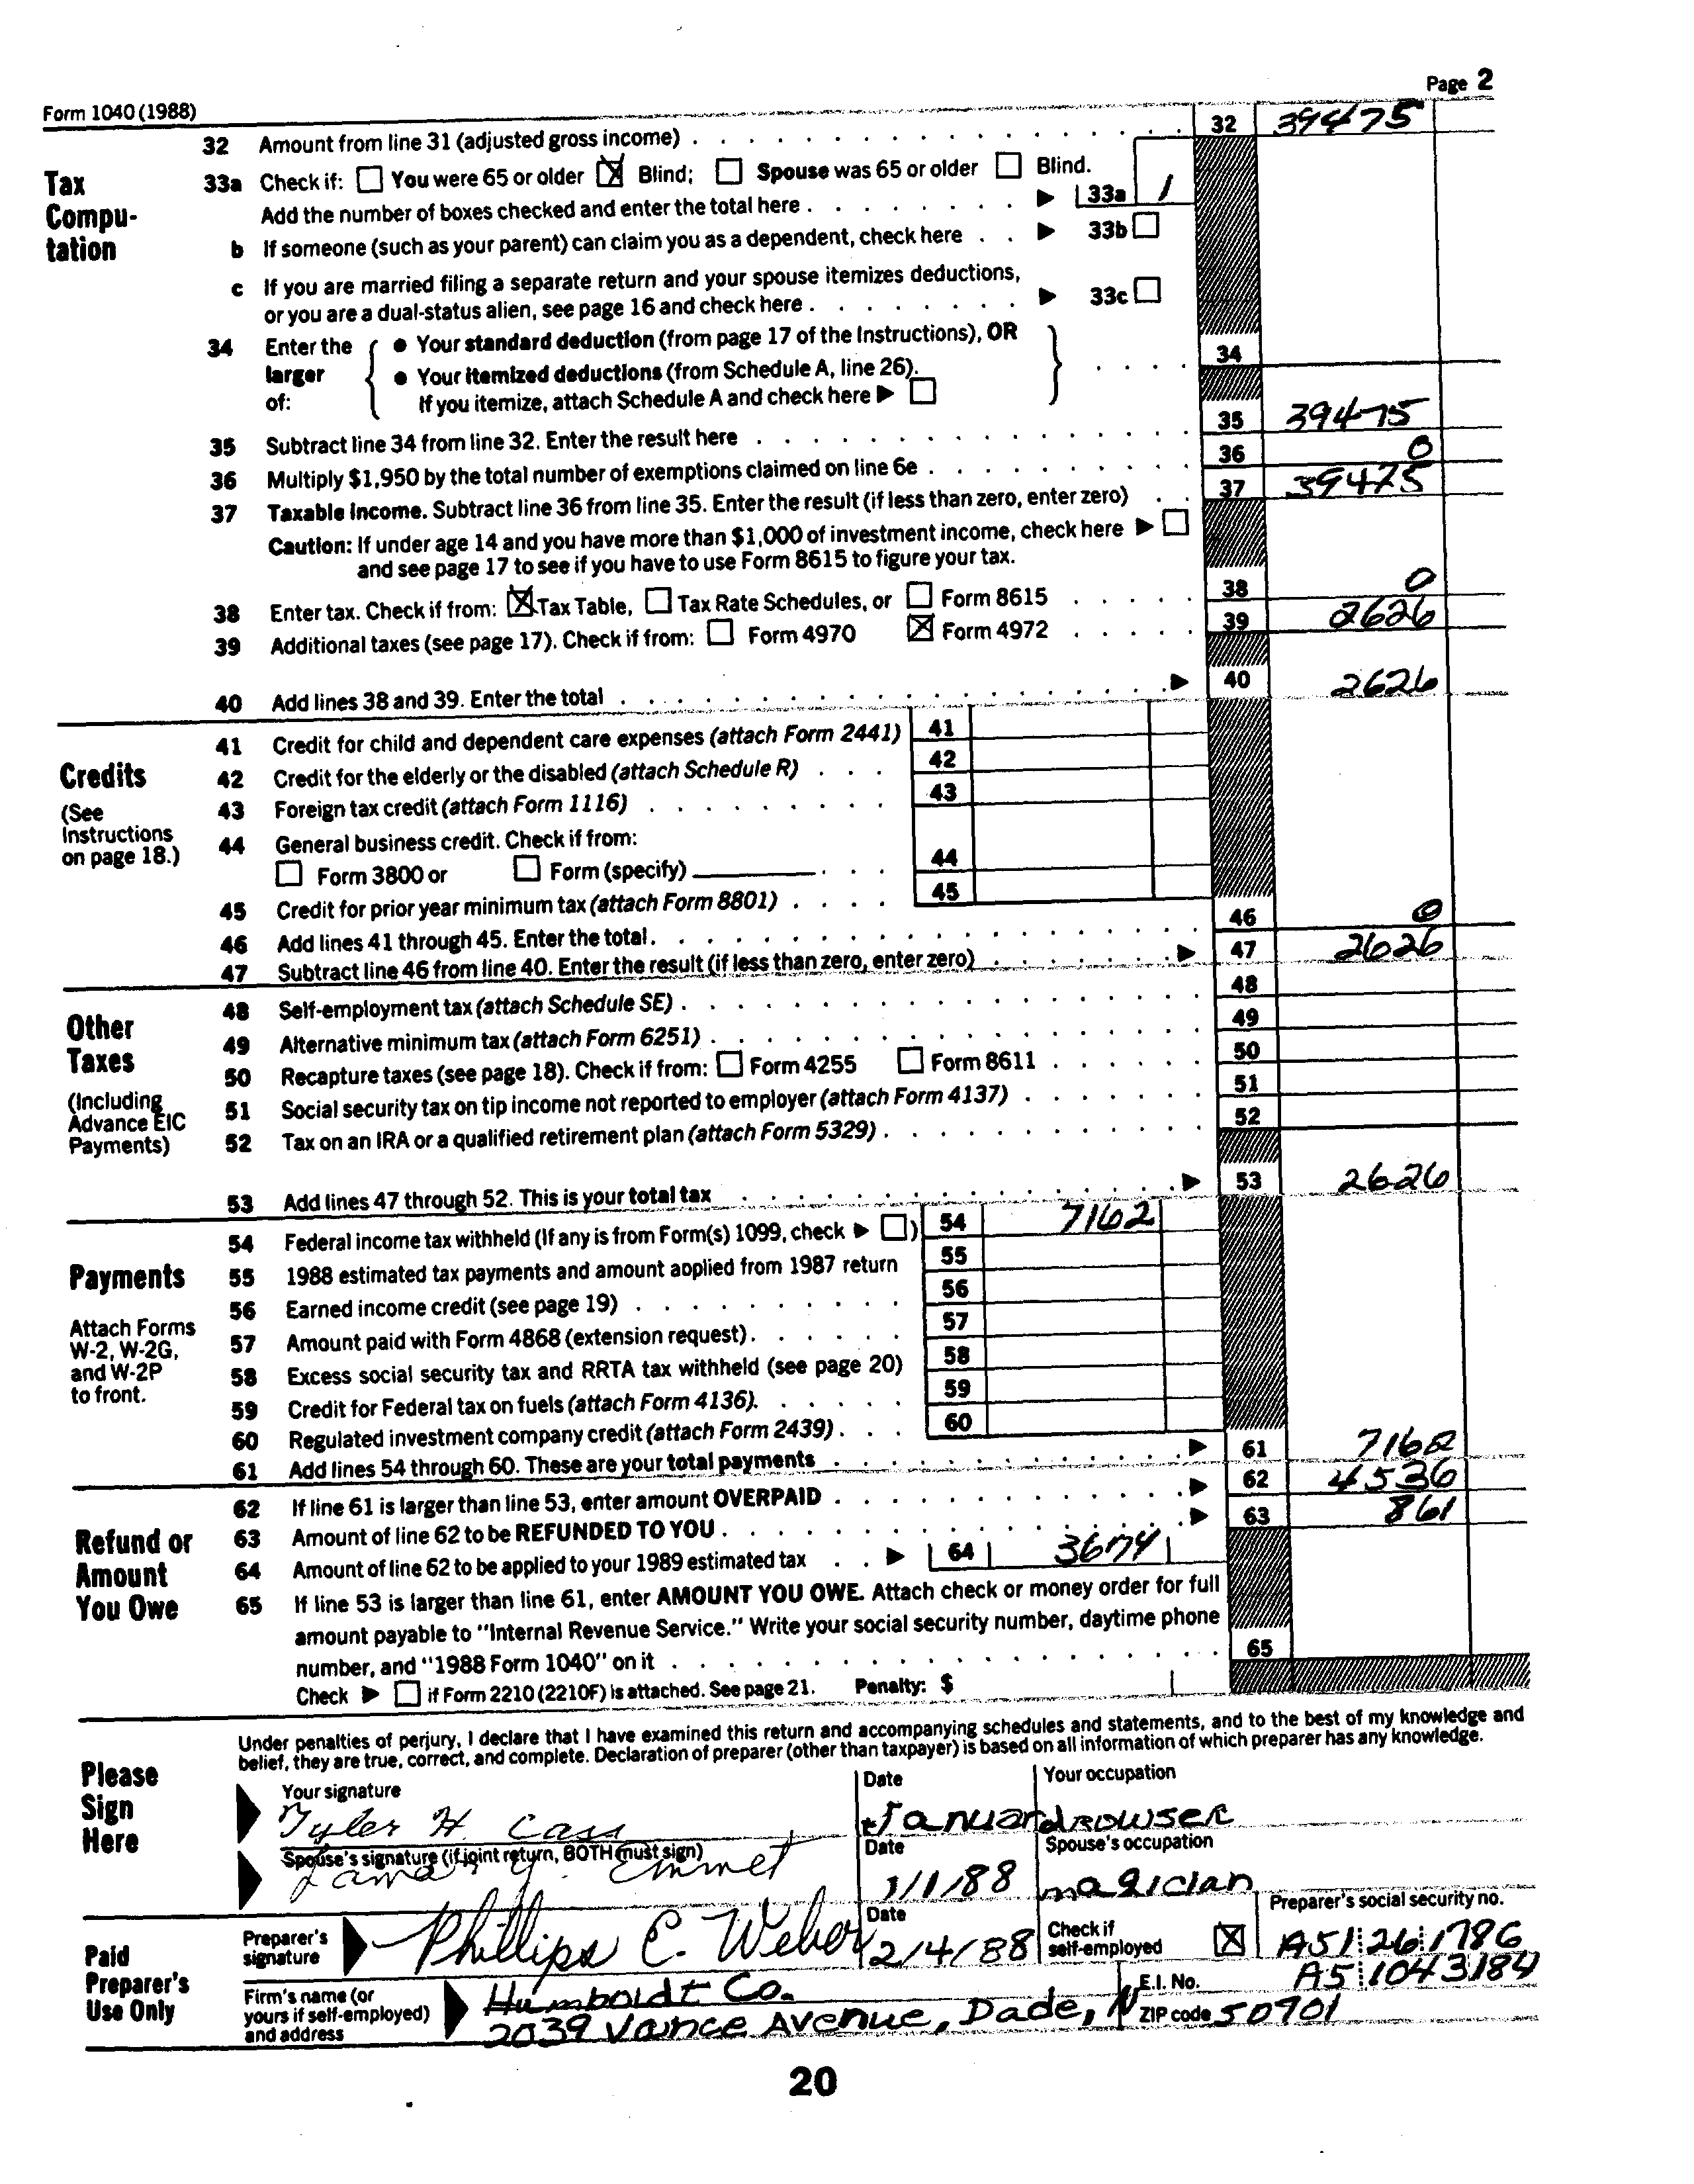 Form 1040 (1988) Page 2
Tax Compu-tation
32 Amount from line 31 (adjusted gross income) 32 39475
33a Check if: You were 65 or older X Blind; Spouse was 65 or older Blind.
Add the number of boxes checked and enter the total here 33a 1
b If someone (such as your parent) can claim you as a dependent, check here 33b
c If you are married filing a separate return and your spouse itemizes deductions,
or you are a dual-status alien, see page 16 and check here 33c
34 Enter the larger of: • Your standard deduction (from page 17 of the Instructions), OR 34
• Your itemized deductions (from Schedule A, line 26).
If you itemize, attach Schedule A and check here
35 Subtract line 34 from line 32. Enter the result here 35 39475
36 Multiply $1,950 by the total number of exemptions claimed on line 6e 36 0
37 Taxable income. Subtract line 36 from line 35. Enter the result (if less than zero, enter zero) 37 39475
Caution: If under age 14 and you have more than $1,000 of investment income, check here
and see page 17 to see if you have to use Form 8615 to figure your tax.
38 Enter tax. Check if from: X Tax Table, Tax Rate Schedules, or Form 8615 38 0
39 Additional taxes (see page 17). Check if from: Form 4970 X Form 4972 39 2626
40 Add lines 38 and 39. Enter the total 40 2626
Credits
(See Instructions on page 18.)
41 Credit for child and dependent care expenses (attach Form 2441) 41
42 Credit for the elderly or the disabled (attach Schedule R) 42
43 Foreign tax credit (attach Form 1116) 43
44 General business credit. Check if from:
Form 3800 or Form (specify) 44
45 Credit for prior year minimum tax (attach Form 8801) 45
46 Add lines 41 through 45. Enter the total. 46 0
47 Subtract line 46 from line 40. Enter the result (if less than zero, enter zero) 47 2626
Other Taxes
(Including Advance EIC Payments)
48 Self-employment tax (attach Schedule SE) 48
49 Alternative minimum tax (attach Form 6251) 49
50 Recapture taxes (see page 18). Check if from: Form 4255 Form 8611 50
51 Social security tax on tip income not reported to employer (attach Form 4137) 51
52 Tax on an IRA or a qualified retirement plan (attach Form 5329) 52
53 Add lines 47 through 52. This is your total tax 53 2626
Payments
Attach Forms W-2, W-2G, and W-2P to front.
54 Federal income tax withheld (If any is from Form(s) 1099, check ) 54 7162
55 1988 estimated tax payments and amount applied from 1987 return 55
56 Earned income credit (see page 19) 56
57 Amount paid with Form 4868 (extension request) 57
58 Excess social security tax and RRTA tax withheld (see page 20) 58
59 Credit for Federal tax on fuels (attach Form 4136). 59
60 Regulated investment company credit (attach Form 2439) 60
61 Add lines 54 through 60. These are your total payments 61 7162
Refund or Amount You Owe
62 If line 61 is larger than line 53, enter amount OVERPAID 62 4536
63 Amount of line 62 to be REFUNDED TO YOU 63 861
64 Amount of line 62 to be applied to your 1989 estimated tax 64 3674
65 If line 53 is larger than line 61, enter AMOUNT YOU OWE. Attach check or money order for full
amount payable to "Internal Revenue Service." Write your social security number, daytime phone
number, and "1988 Form 1040" on it 65
Check if Form 2210 (2210F) is attached. See page 21. Penalty: $
Please Sign Here
Under penalties of perjury, I declare that I have examined this return and accompanying schedules and statements, and to the best of my knowledge and
belief, they are true, correct, and complete. Declaration of preparer (other than taxpayer) is based on all information of which preparer has any knowledge.
Your signature Date Your occupation
Tyler H. Cass Januar drowser
Spouse's signature (if joint return, BOTH must sign) Date Spouse's occupation
Y. Emmet 1/1/88 magician
Paid Preparer's Use Only
Preparer's signature Date Check if self-employed X Preparer's social security no.
Phillips C. Weber 2/4/88 A51 26 1786
Firm's name (or yours if self-employed) and address
Humboldt Co. E.I. No. A5 1043184
2039 Vance Avenue, Dade, N ZIP code 50901
20